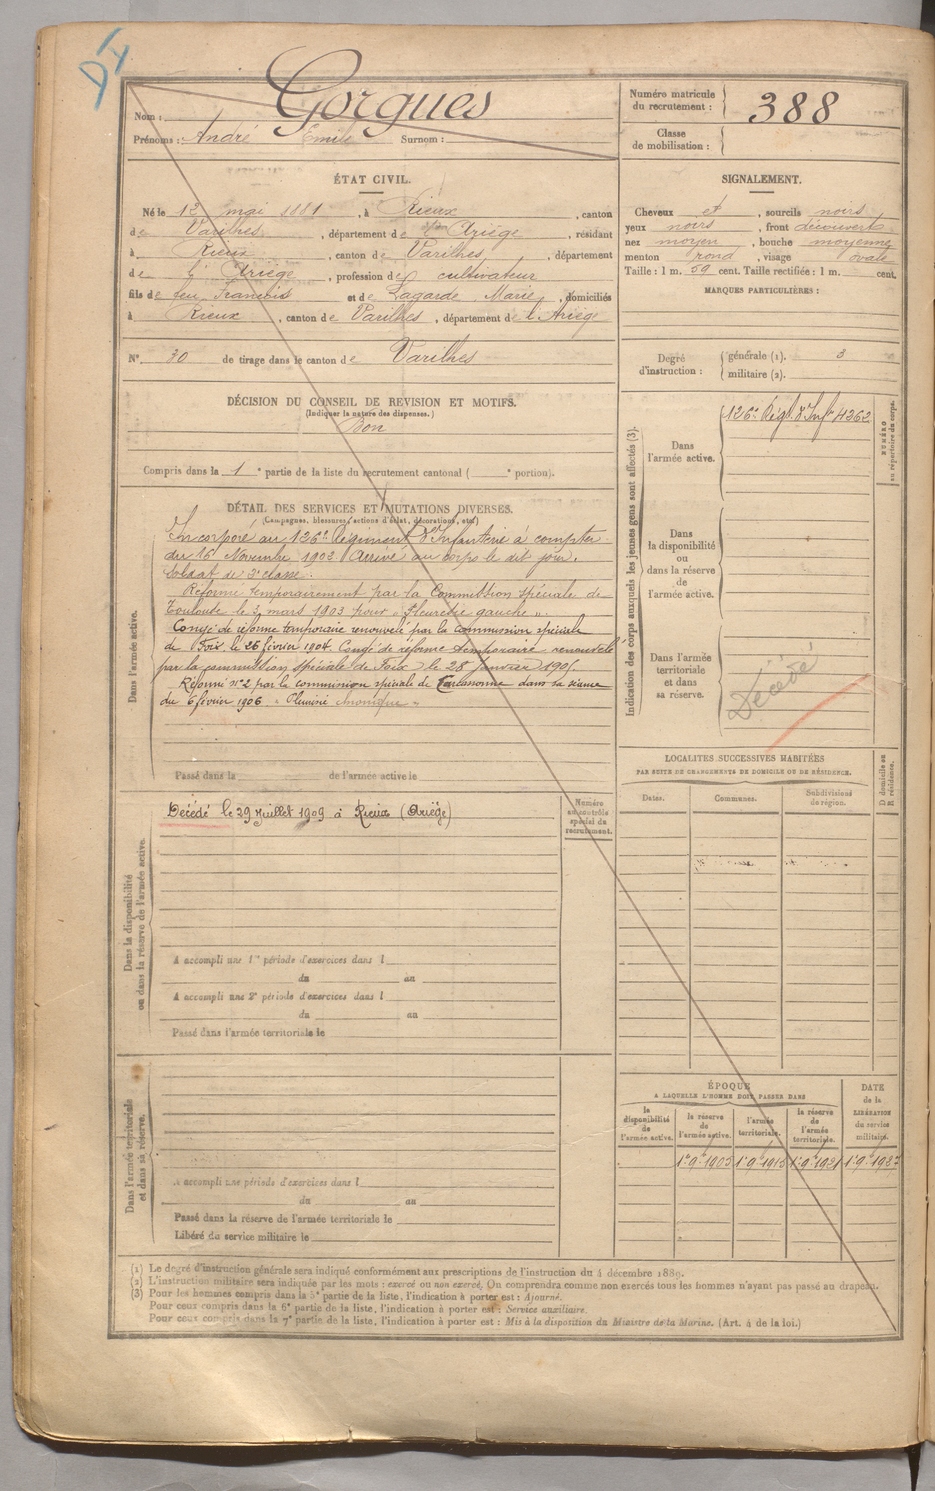 D4
Nom : Gorgues
Prénoms : André Emile Surnom :
Numéro matricule du recrutement : 388
Classe de mobilisation :
ÉTAT CIVIL.
Né le 12 mai 1881, à Rieux, canton
de Varilhes, département de l'Ariège, résidant
à Rieux, canton de Varilhes, département
de l'Ariège, profession de cultivateur
fils de feu François et de Lagarde Marie, domiciliés
à Rieux, canton de Varilhes, département de l'Ariège
N° 30 de tirage dans le canton de Varilhes
SIGNALEMENT.
Cheveux et, sourcils noirs
yeux noirs, front découvert
nez moyen, bouche moyenne
menton rond, visage ovale
Taille : 1 m. 59 cent. Taille rectifiée : 1 m. cent.
MARQUES PARTICULIÈRES :
Degré d'instruction : générale (1). 3
militaire (2).
DÉCISION DU CONSEIL DE REVISION ET MOTIFS.
(Indiquer la nature des dispenses.)
Bon
Compris dans la 1e partie de la liste du recrutement cantonal ( e portion).
DÉTAIL DES SERVICES ET MUTATIONS DIVERSES.
(Campagnes, blessures, actions d'éclat, décorations, etc.)
Dans l'armée active.
Incorporé au 126e Régiment d'Infanterie à compter
du 16 Novembre 1902 Arrivé au corps le dit jour.
Soldat de 2e classe.
Réformé temporairement par la Commission spéciale de
Toulouse le 3 mars 1903 pour "Pleurésie gauche".
Congé de réforme temporaire renouvelé par la commission spéciale
de Foix le 26 février 1904. Congé de réforme temporaire renouvelé
par la commission spéciale de Foix le 28 janvier 1905
Réformé n° 2 par la commission spéciale de Carcassonne dans sa séance
du 6 février 1906 "Pleurésie chronique"
Passé dans la de l'armée active le
Indication des corps auxquels les jeunes gens sont affectés (3).
NUMÉRO au répertoire du corps.
Dans l'armée active.
126e Régt. d'Infie 4362
Dans la disponibilité ou dans la réserve de l'armée active.
Dans l'armée territoriale et dans sa réserve.
Décédé
Dans la disponibilité ou dans la réserve de l'armée active.
Décédé le 29 Juillet 1909 à Rieux (Ariège)
Numéro au contrôle spécial du recrutement.
A accompli une 1re période d'exercices dans l
du au
A accompli une 2e période d'exercices dans l
du au
Passé dans l'armée territoriale le
LOCALITÉS SUCCESSIVES HABITÉES
PAR SUITE DE CHANGEMENTS DE DOMICILE OU DE RÉSIDENCE.
Dates. Communes. Subdivisions de région. D domicile ou R résidence.
Dans l'armée territoriale et dans sa réserve.
A accompli une période d'exercices dans l
du au
Passé dans la réserve de l'armée territoriale le
Libéré du service militaire le
ÉPOQUE
A LAQUELLE L'HOMME DOIT PASSER DANS
la disponibilité de l'armée active. la réserve de l'armée active. l'armée territoriale. la réserve de l'armée territoriale.
DATE de la LIBÉRATION du service militaire.
1er 9bre 1905 1er 9bre 1915 1er 9bre 1921 1er 9bre 1927
(1) Le degré d'instruction générale sera indiqué conformément aux prescriptions de l'instruction du 4 décembre 1889.
(2) L'instruction militaire sera indiquée par les mots : exercé ou non exercé. On comprendra comme non exercés tous les hommes n'ayant pas passé au drapeau.
(3) Pour les hommes compris dans la 5e partie de la liste, l'indication à porter est : Ajourné.
Pour ceux compris dans la 6e partie de la liste, l'indication à porter est : Service auxiliaire.
Pour ceux compris dans la 7e partie de la liste, l'indication à porter est : Mis à la disposition du Ministre de la Marine. (Art. 4 de la loi.)